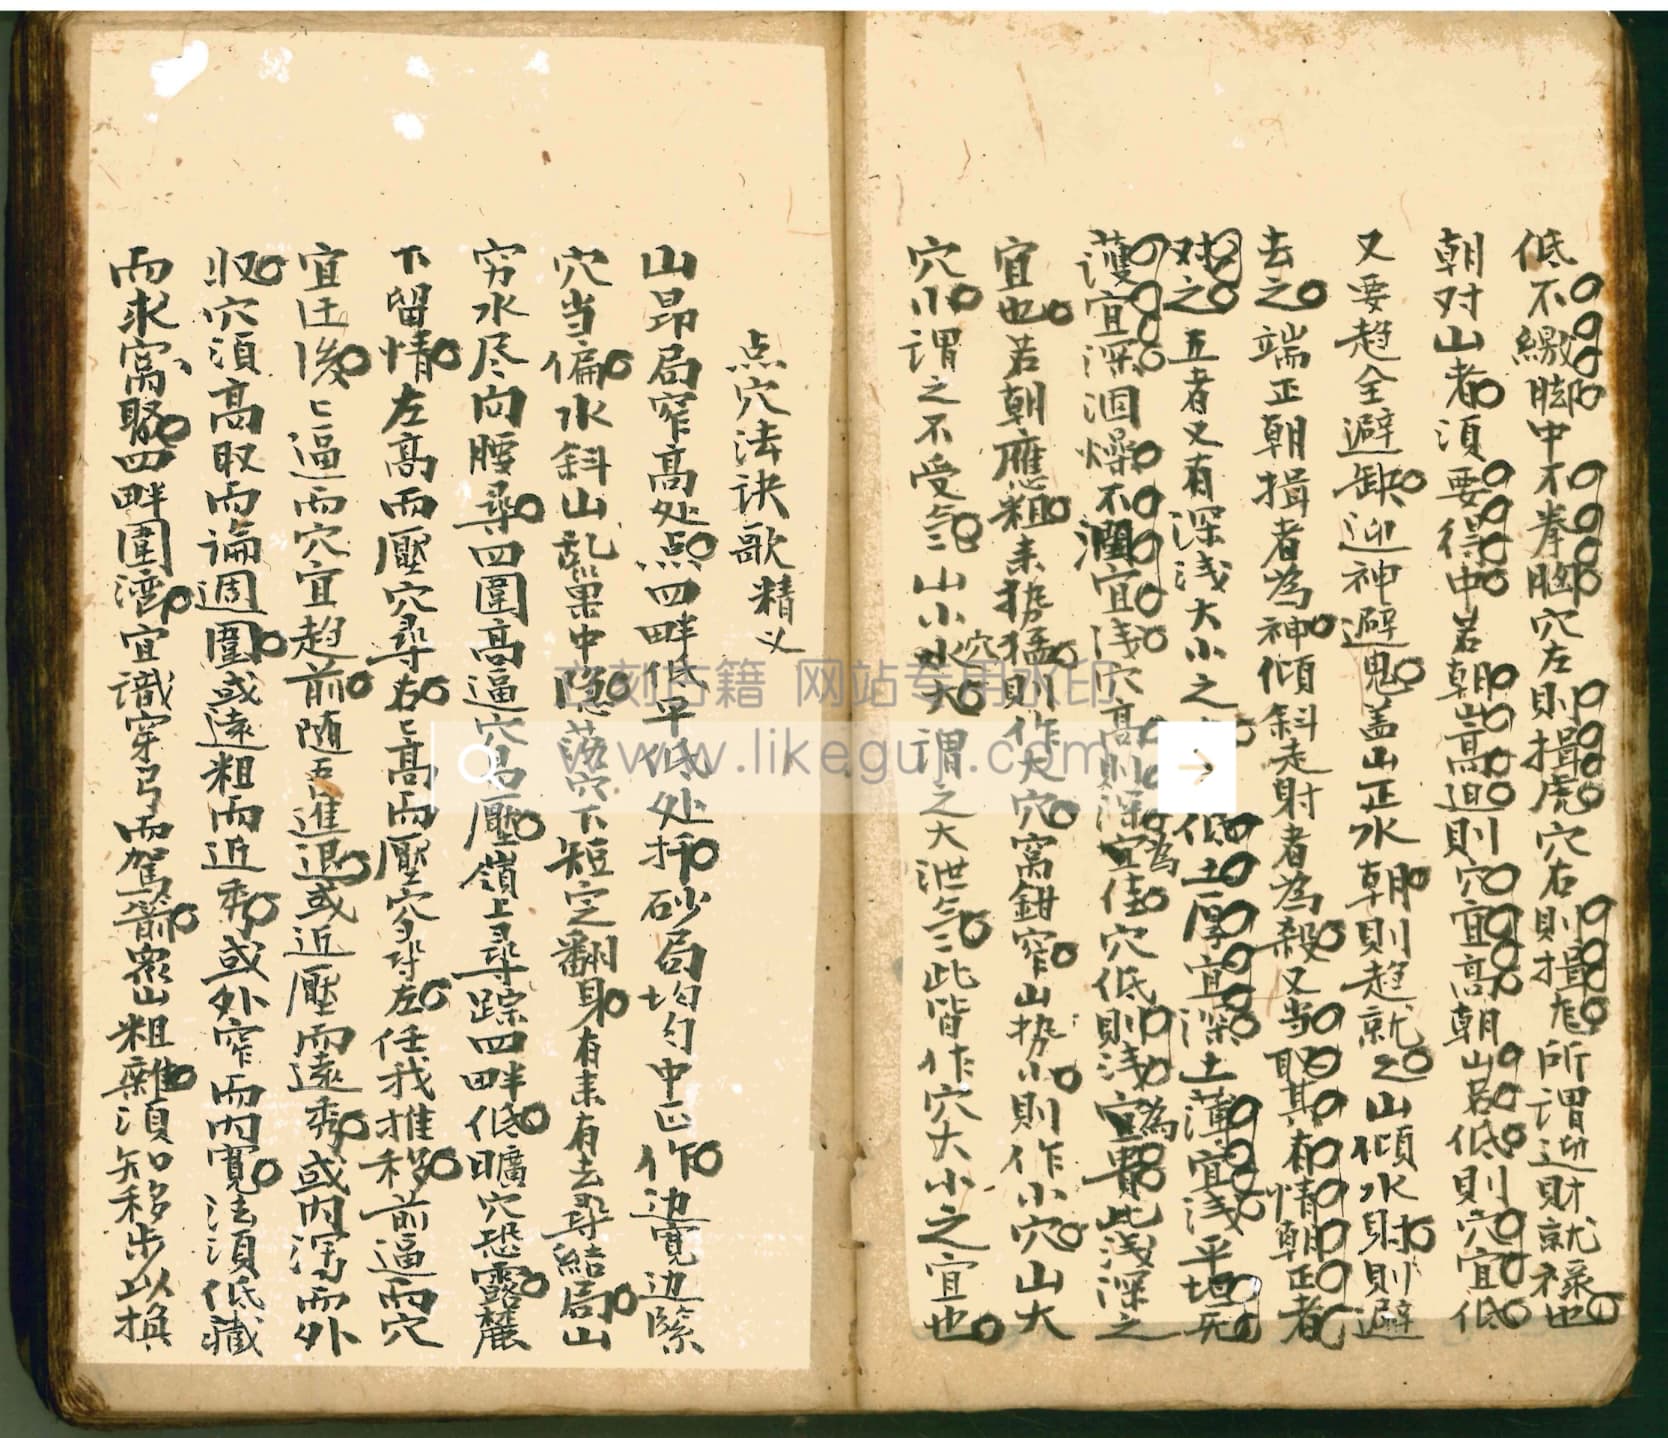 低不繳脚中不拳胸穴左則揖虎穴右則揖尨所謂迎財就祿也
朝对山者須要得中若朝山高迫則穴宜高朝山若低則穴宜低
又要趋全避缺迎神避鬼盖山正水朝則趋就之山傾水射則避
去之端正朝揖者為神傾斜走射者為殺又当取其有情朝正者
对之五者又有深浅大小之低土厚宜深土薄宜浅平坦无
護宜深涸燥不潤宜浅穴高則深宜為佳穴低則浅宜為貴此浅深之
宜也若朝應粗来势猛則作大穴窝鉗窄山势小則作小穴山大
穴小謂之不受气山小水穴大謂之大泄气此皆作穴大小之宜也
点穴法诀歌精义
山昂局窄高处点四畔低平低处扦砂局均匀中正作边寛边緊
穴当偏水斜山乱巣中隐落穴下短定翻身有来有去尋結局山
穷水尽向腰尋四圍高逼穴易壓嶺上尋踪四畔低曠穴恐露麓
下留情左高而壓穴尋右右高而壓穴尋左任我推移前逼而穴
宜迋後後逼而穴宜趋前随吾進退或近壓而遠秀或内瀉而外
収穴須高取而論週圍或遠粗而近秀或外窄而内寛法須低藏
而求窩聚四畔圍湾宜識穿弓而架箭衆山粗雜須知移步以換
六刻古籍 网站专用水印
www.likegu.com